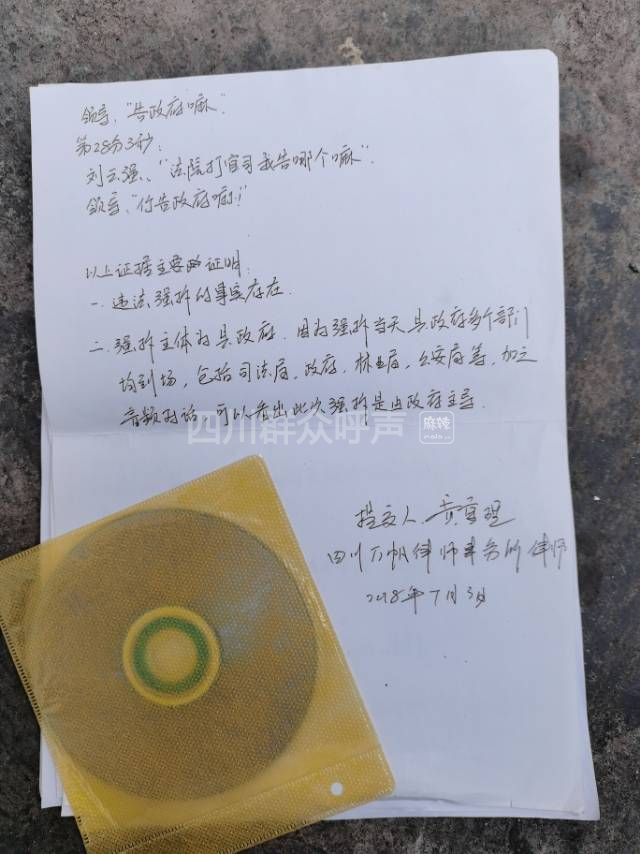 领导:“告政府嘛”
第28分3秒:
刘云强:“法院打官司我告哪个嘛”
领导:“你告政府嘛!”
以上证据主要证明:
一、违法强拆的事实存在.
二、强拆主体为县政府.因为强拆当天县政府多个部门
均到场,包括司法局,政府,林业局,公安局等,加之
音频对话,可以看出此次强拆是由政府主导.
四川群众呼声
麻辣
提交人
四川万帆律师事务所律师
2018年7月3日